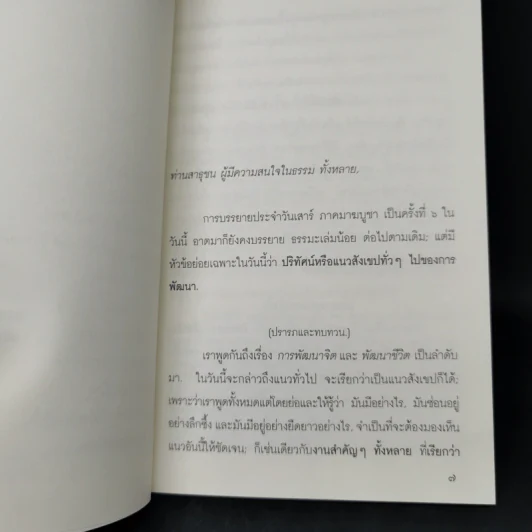 ท่านสาธุชน ผู้มีความสนใจในธรรม ทั้งหลาย,
การบรรยายประจำวันเสาร์ ภาคมาฆบูชา เป็นครั้งที่ ๖ ใน
วันนี้ อาตมาก็ยังคงบรรยาย ธรรมะเล่มน้อย ต่อไปตามเดิม; แต่มี
หัวข้อย่อยเฉพาะในวันนี้ว่า ปริทัศน์หรือแนวสังเขปทั่วๆ ไปของการ
พัฒนา.
(ปรารภและทบทวน.)
เราพูดกันถึงเรื่อง การพัฒนาจิต และ พัฒนาชีวิต เป็นลำดับ
มา. ในวันนี้จะกล่าวถึงแนวทั่วไป จะเรียกว่าเป็นแนวสังเขปก็ได้;
เพราะว่าเราพูดทั้งหมดแต่โดยย่อและให้รู้ว่า มันมีอย่างไร, มันซ่อนอยู่
อย่างลึกซึ้ง และมันมีอยู่อย่างยืดยาวอย่างไร, จำเป็นที่จะต้องมองเห็น
แนวอันนี้ให้ชัดเจน; ก็เช่นเดียวกับงานสำคัญๆ ทั้งหลาย ที่เรียกว่า
๗